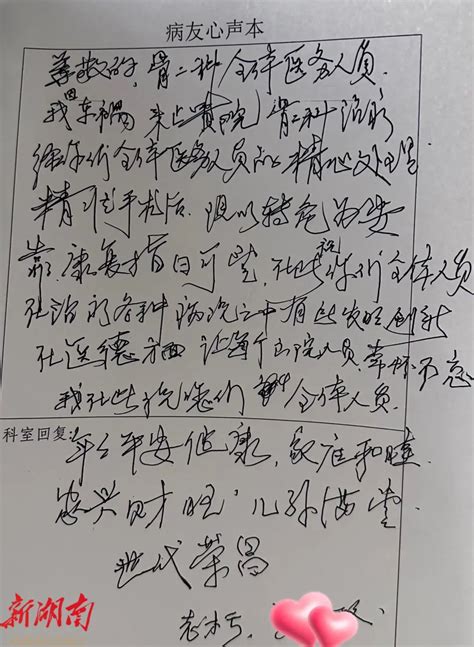 病友心声本
尊敬的,骨二科全体医务人员.
我因车祸 来占贵院骨二科治疗
经你们全体医务人员的精心处理
精心手术后,得以转危为安
康复指日可望,在此祝你们全体人员
在治疗各种病况之中有更大的创新
在医德方面 让每个出院人员,常怀不忘
我在此祝愿你们全体人员.
科室回复:
年年平安健康,家庭和睦.
家兴财旺,儿孙满堂
世代荣昌
新湖南